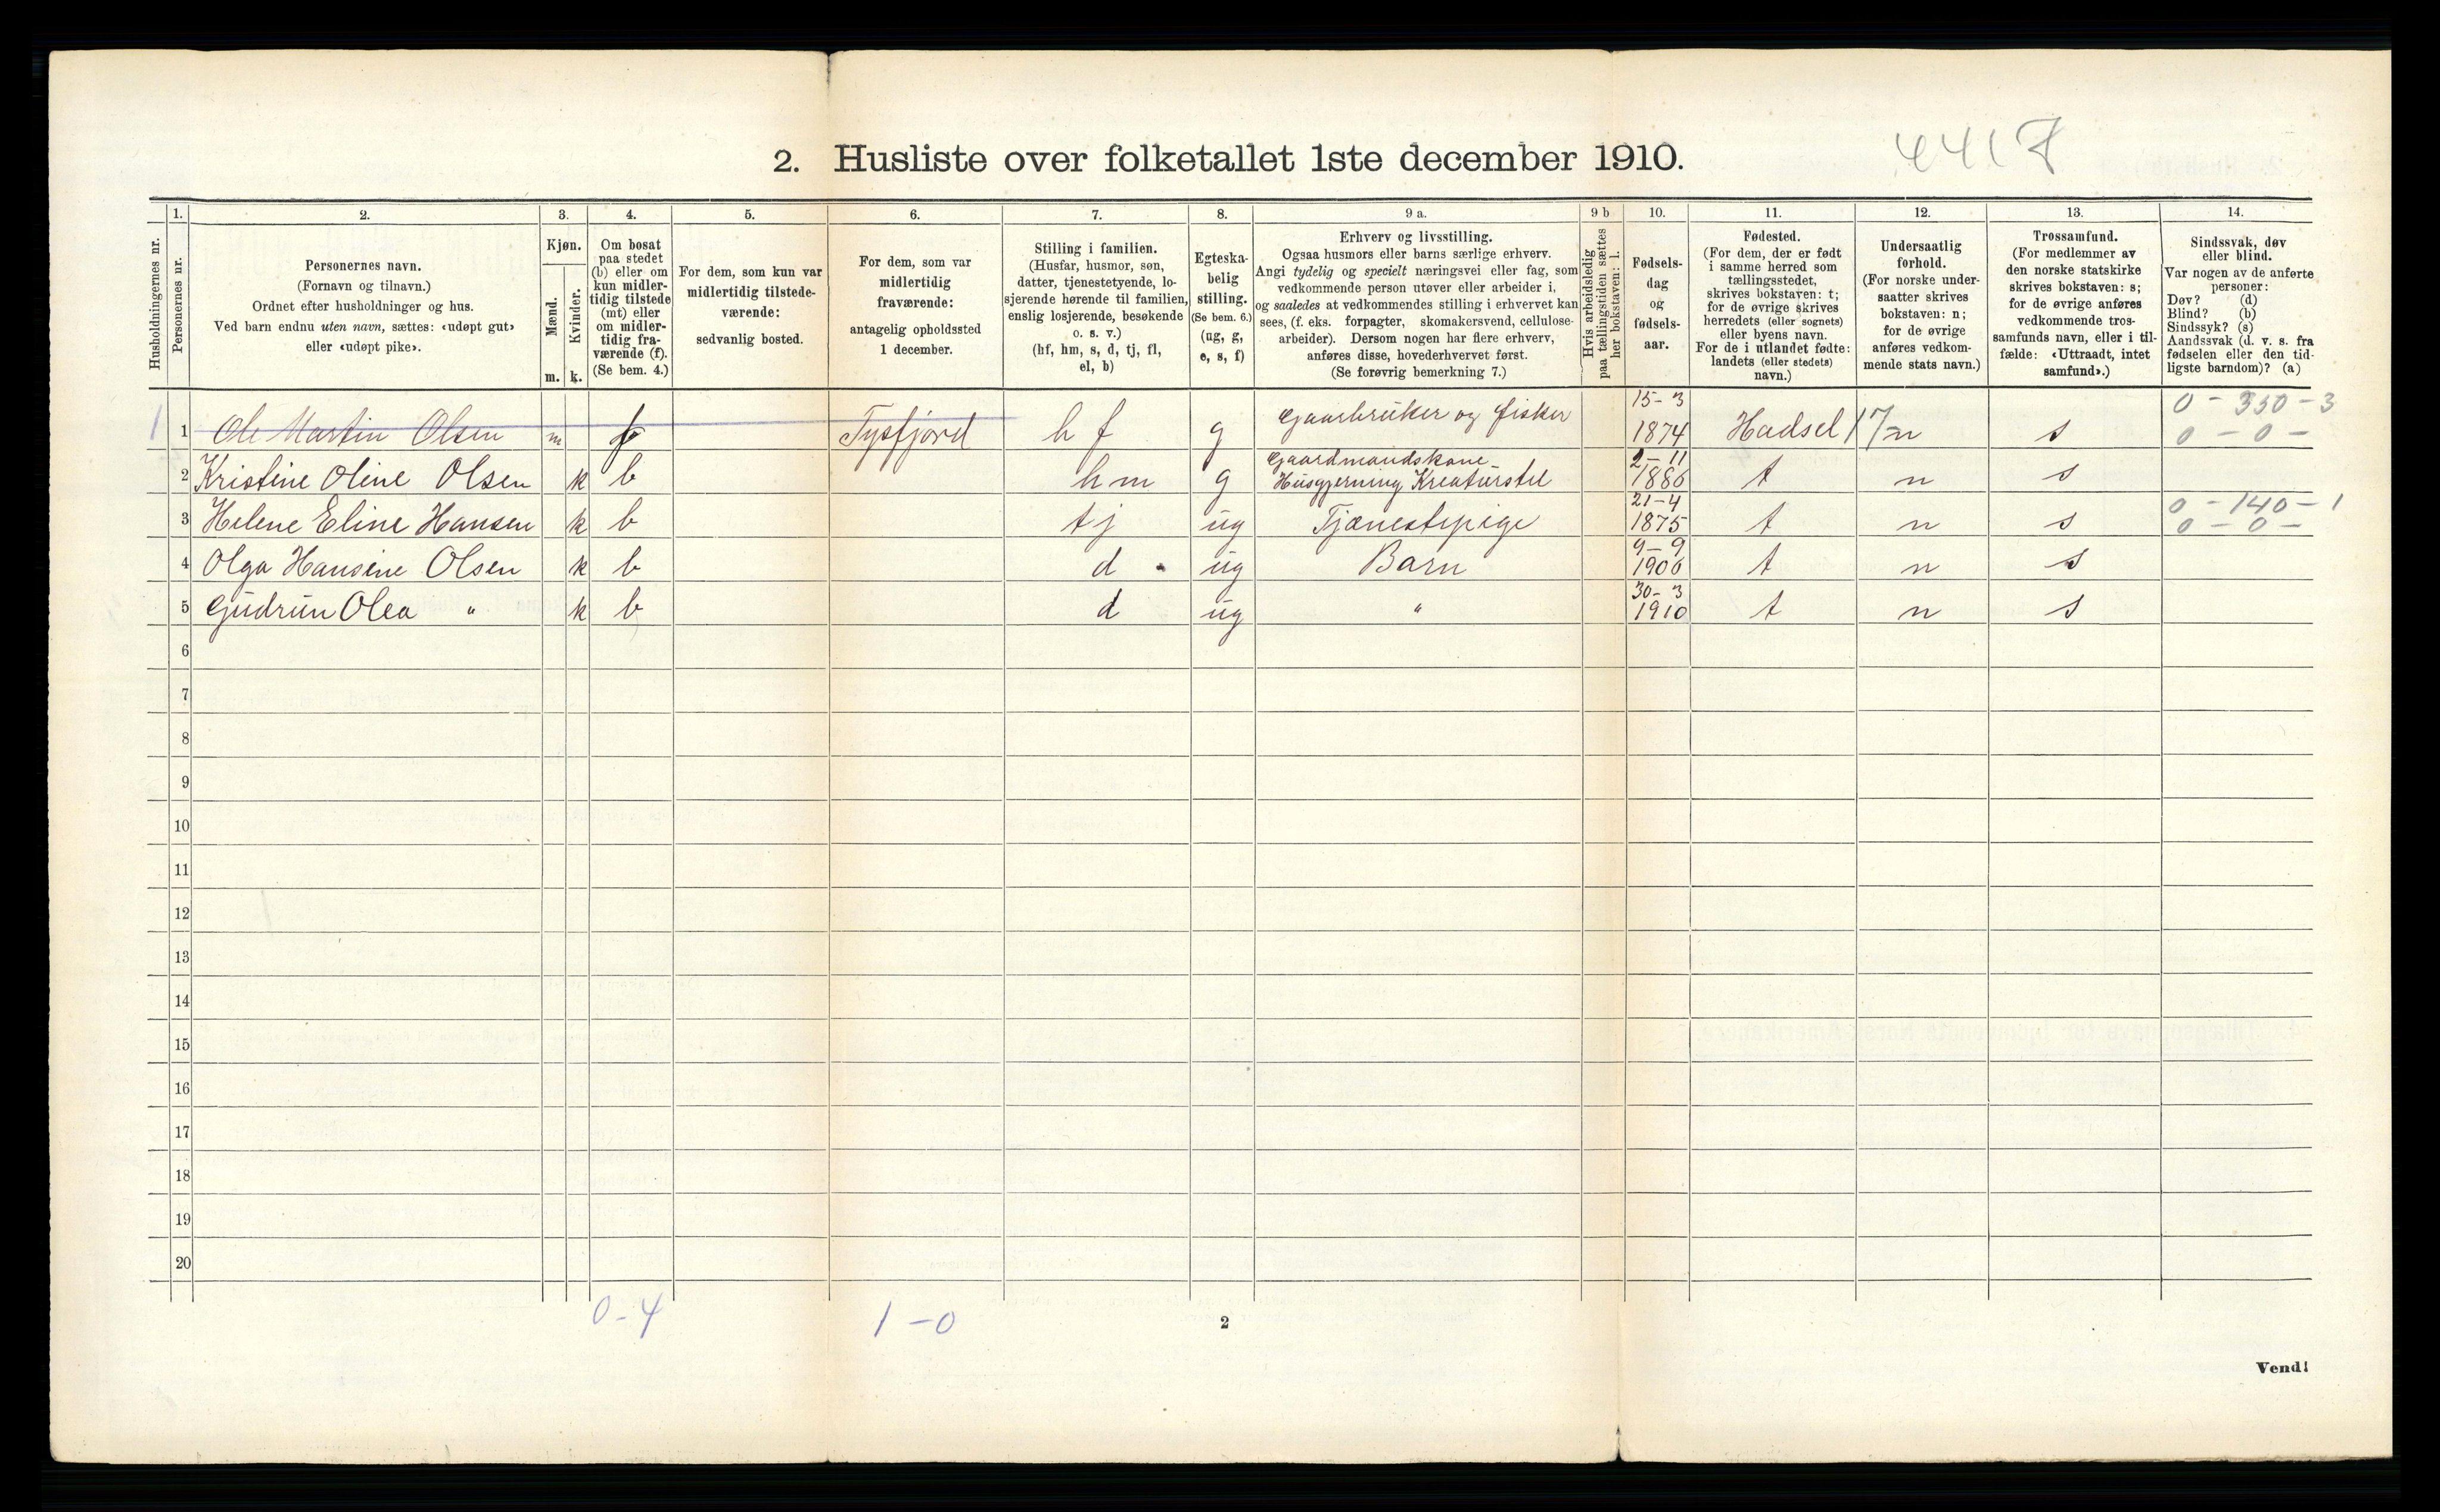 4417
2. Husliste over folketallet 1ste december 1910.
Husholdningernes nr.
1.
Personernes nr.
2.
Personernes navn.
(Fornavn og tilnavn.)
Ordnet efter husholdninger og hus.
Ved barn endnu uten navn, sættes: «udøpt gut»
eller «udøpt pike».
3.
Kjøn.
Mænd.
Kvinder.
m. k.
4.
Om bosat
paa stedet
(b) eller om
kun midler-
tidig tilstede
(mt) eller
om midler-
tidig fra-
værende (f).
(Se bem. 4.)
5.
For dem, som kun var
midlertidig tilstede-
værende:
sedvanlig bosted.
6.
For dem, som var
midlertidig
fraværende:
antagelig opholdssted
1 december.
7.
Stilling i familien.
(Husfar, husmor, søn,
datter, tjenestetyende, lo-
sjerende hørende til familien,
enslig losjerende, besøkende
o. s. v.)
(hf, hm, s, d, tj, fl,
el, b)
8.
Egteska-
belig
stilling.
(Se bem. 6.)
(ug, g,
e, s, f)
9 a.
Erhverv og livsstilling.
Ogsaa husmors eller barns særlige erhverv.
Angi tydelig og specielt næringsvei eller fag, som
vedkommende person utøver eller arbeider i,
og saaledes at vedkommendes stilling i erhvervet kan
sees, (f. eks. forpagter, skomakersvend, cellulose-
arbeider). Dersom nogen har flere erhverv,
anføres disse, hovederhvervet først.
(Se forøvrig bemerkning 7.)
9 b
Hvis arbeidsledig
paa tællingstiden sættes
her bokstaven: l.
10.
Fødsels-
dag
og
fødsels-
aar.
11.
Fødested.
(For dem, der er født
i samme herred som
tællingsstedet,
skrives bokstaven: t;
for de øvrige skrives
herredets (eller sognets)
eller byens navn.
For de i utlandet fødte:
landets (eller stedets)
navn.)
12.
Undersaatlig
forhold.
(For norske under-
saatter skrives
bokstaven: n;
for de øvrige
anføres vedkom-
mende stats navn.)
13.
Trossamfund.
(For medlemmer av
den norske statskirke
skrives bokstaven: s;
for de øvrige anføres
vedkommende tros-
samfunds navn, eller i til-
fælde: «Uttraadt, intet
samfund».)
14.
Sindssvak, døv
eller blind.
Var nogen av de anførte
personer:
Døv? (d)
Blind? (b)
Sindssyk? (s)
Aandssvak (d. v. s. fra
fødselen eller den tid-
ligste barndom)? (a)
15-3 0-350-3
1 1 Ole Martin Olsen m f Tysfjord hf g Gaarbruker og fisker 1874 Hadsel 17 n s 0-0-
Gaardmandskone 2-11
2 Kristine Oline Olsen k b hm g Husgjerning Kreaturstel 1886 t n s
21-4 0-140-1
3 Helene Eline Hansen k b tj ug Tjænestepige 1875 t n s 0-0-
9-9
4 Olga Hansine Olsen k b d ug Barn 1906 t n s
30-3
5 Gudrun Olea " k b d ug " 1910 t n s
6
7
8
9
10
11
12
13
14
15
16
17
18
19
20
0-4 1-0
2
Vend!